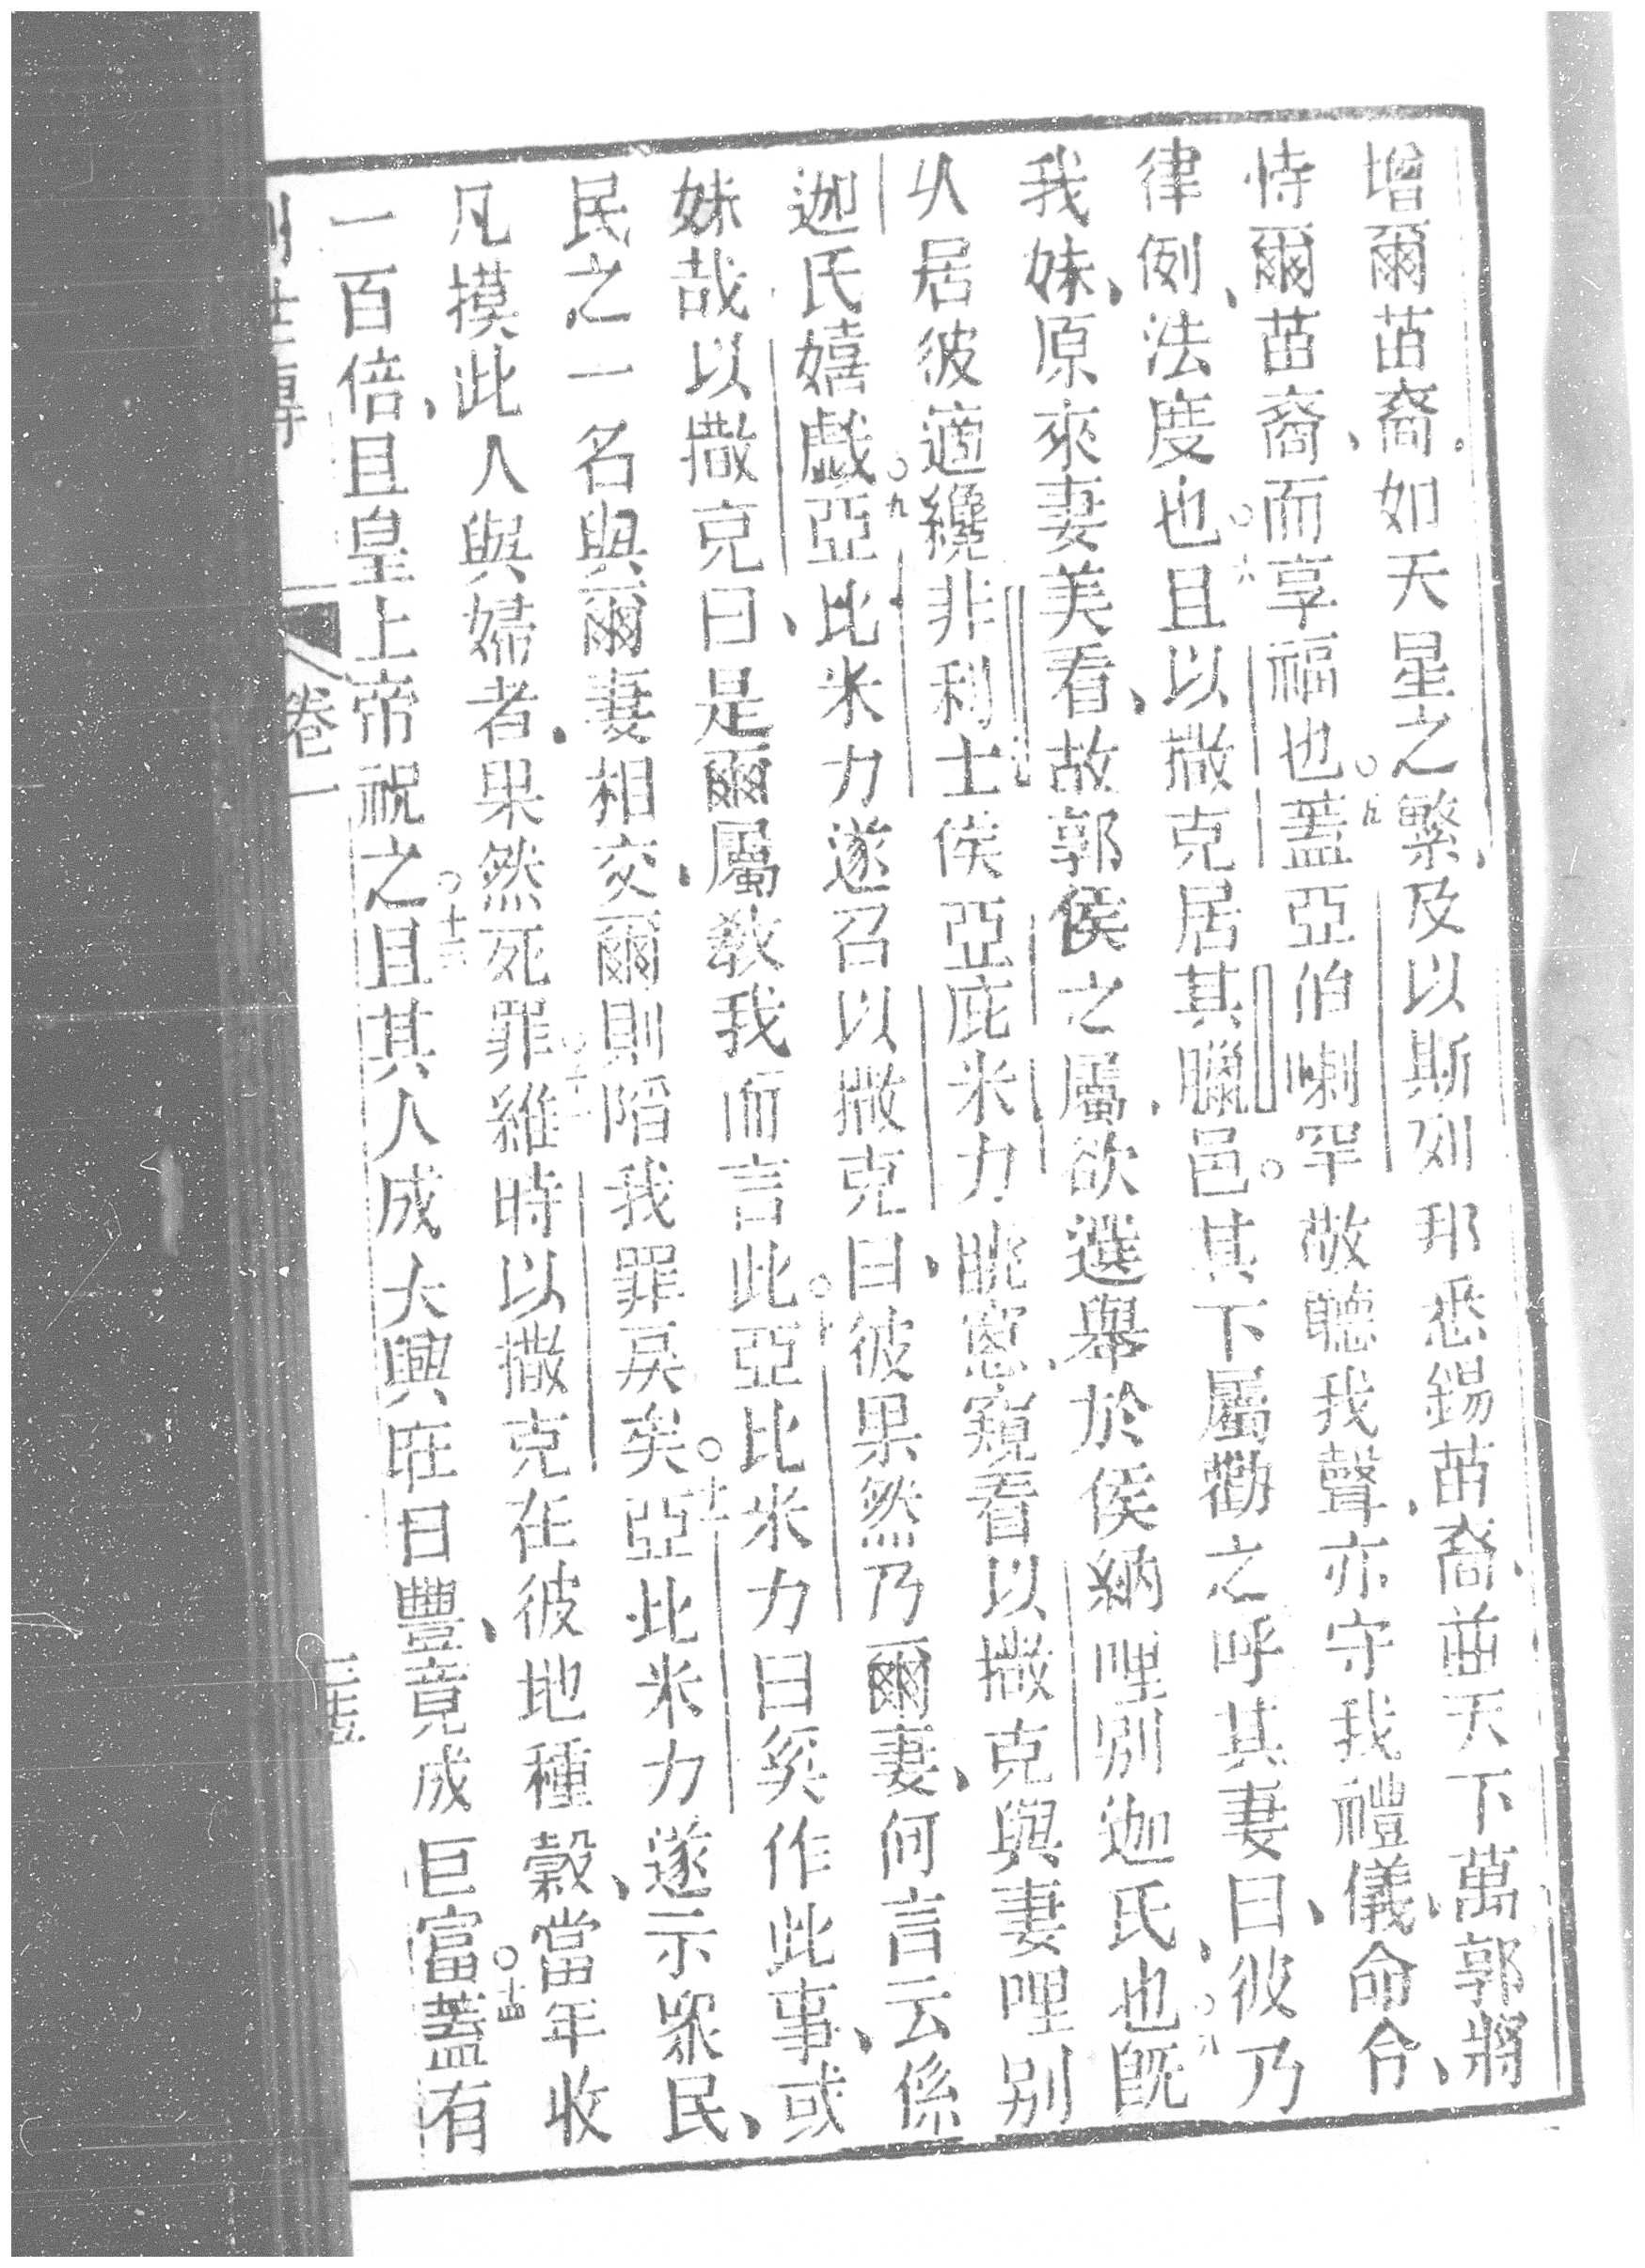 增爾苗裔。如天星之繁、及以斯列邦悉錫苗裔、普天下萬郭將
恃爾苗裔、而享福也○五蓋亞伯喇罕敬聽我聲、亦守我禮儀、命令、
律例、法度也○六且以撒克居其臘邑。其下屬勸之呼其妻曰、彼乃
我妹、原來妻美看、故郭侯之屬、欲選舉於侯納哩別迦氏也、○八既
久居彼適纔非利士侯亞庇米力、眺窓、窺看以撒克與妻哩別
迦氏嬉戲○九亞比米力遂召以撒克曰、彼果然乃爾妻、何言云係
妹哉以撒克曰、是爾屬教我而言此。○十亞比米力曰奚作此事、或
民之一名與爾妻相交、爾則陷我罪戾矣○十一亞比米力遂示眾民、
凡摸此人與婦者、果然死罪○十二維時以撒克在彼地種穀、當年收
一百倍、且皇上帝祝之○十三且其人成大興旺日豐、竟成巨富○十四蓋有
創世傳 卷一 三五